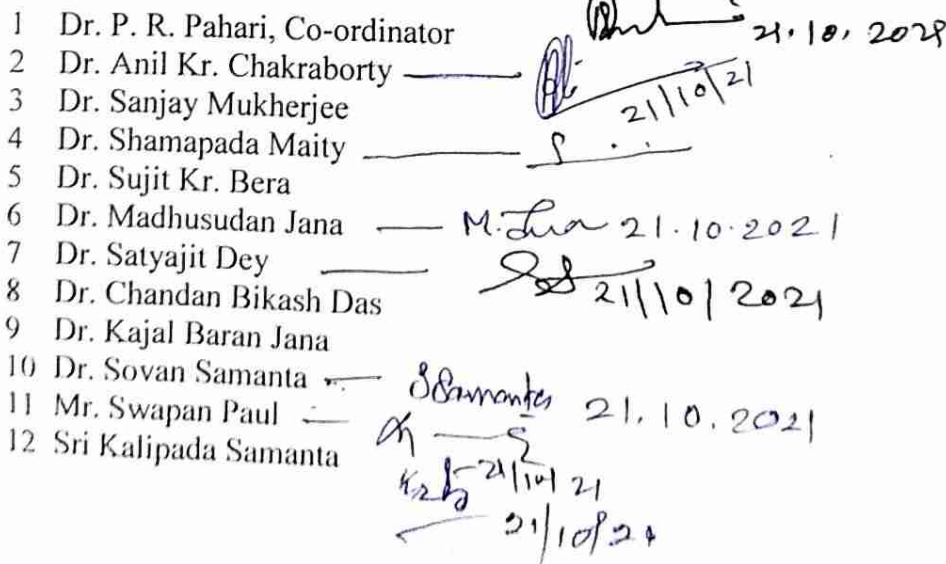 1 Dr. P. R. Pahari, Co-ordinator 21.10.2021
2 Dr. Anil Kr. Chakraborty 21/10/21
3 Dr. Sanjay Mukherjee
4 Dr. Shamapada Maity
5 Dr. Sujit Kr. Bera
6 Dr. Madhusudan Jana M. Jana 21.10.2021
7 Dr. Satyajit Dey 21/10/2021
8 Dr. Chandan Bikash Das
9 Dr. Kajal Baran Jana
10 Dr. Sovan Samanta SSamanta 21.10.2021
11 Mr. Swapan Paul
12 Sri Kalipada Samanta
21/10/21
21/10/21